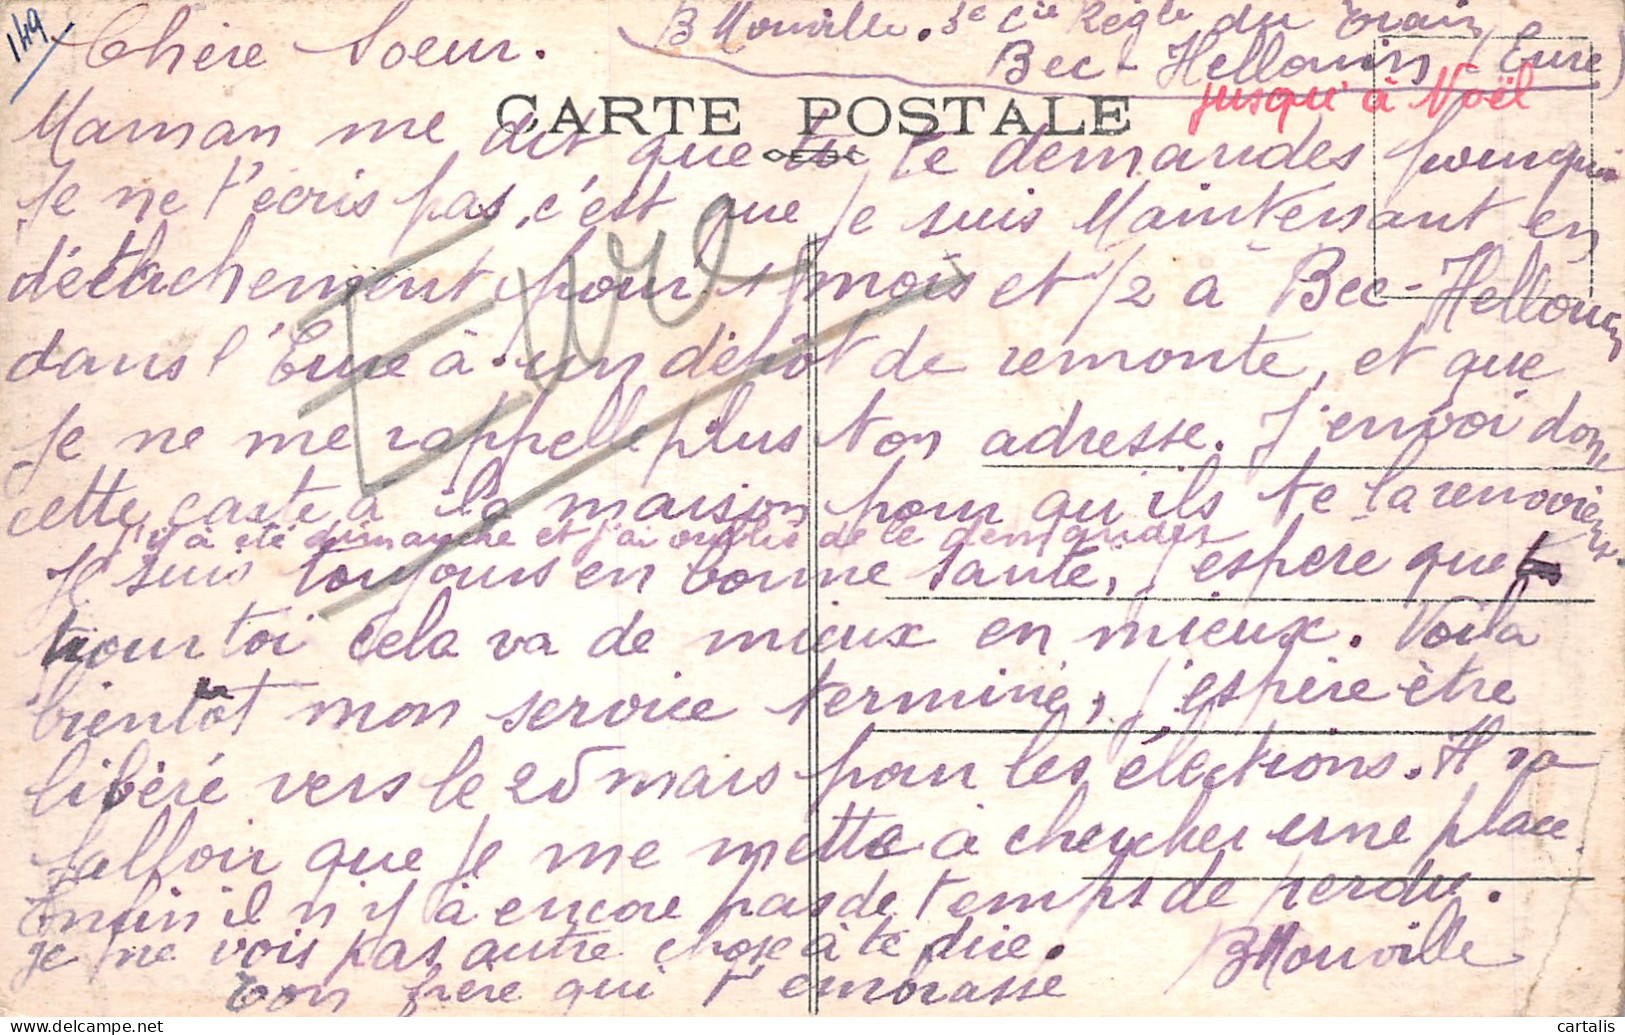 149
BMouville. 3e Cie Regt du Train
Bec-Hellouin (Eure)
jusqu'à Noël
Chère Soeur.
CARTE POSTALE
Maman me dit que tu te demandes pourquoi
Je ne t'écris pas, c'est que je suis Maintenant en
détachement pour 1 mois et 1/2 à Bec-Hellouin
dans l'Eure à un dépôt de remonte, et que
Je ne me rappelle plus ton adresse. J'envoi donc
cette carte à la maison pour qu'ils te la renvoient.
J'y ai été dimanche et j'ai oublié de le demander
Je suis toujours en bonne santé, j'espère que
pour toi cela va de mieux en mieux. Voila
bientôt mon service terminé, j'espère être
libéré vers le 25 mars pour les élections. Il va
falloir que je me mette à chercher une place.
Enfin il n'y à encore pas de temps de perdu.
Je ne vois pas autre chose à te dire.
Ton frère qui t'embrasse
BMouville
Eure
cartalis